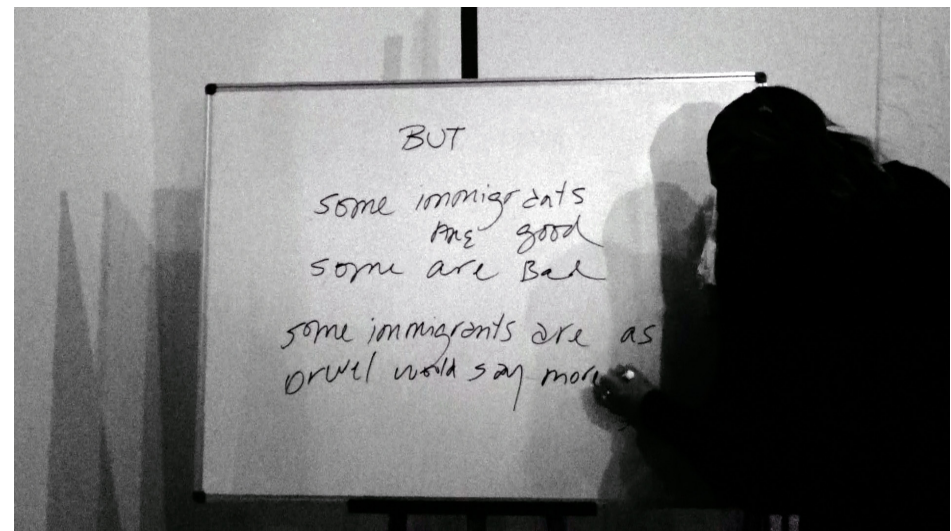 BUT
some immigrants
are good
some are Bad
some immigrants are as
orwel would say more